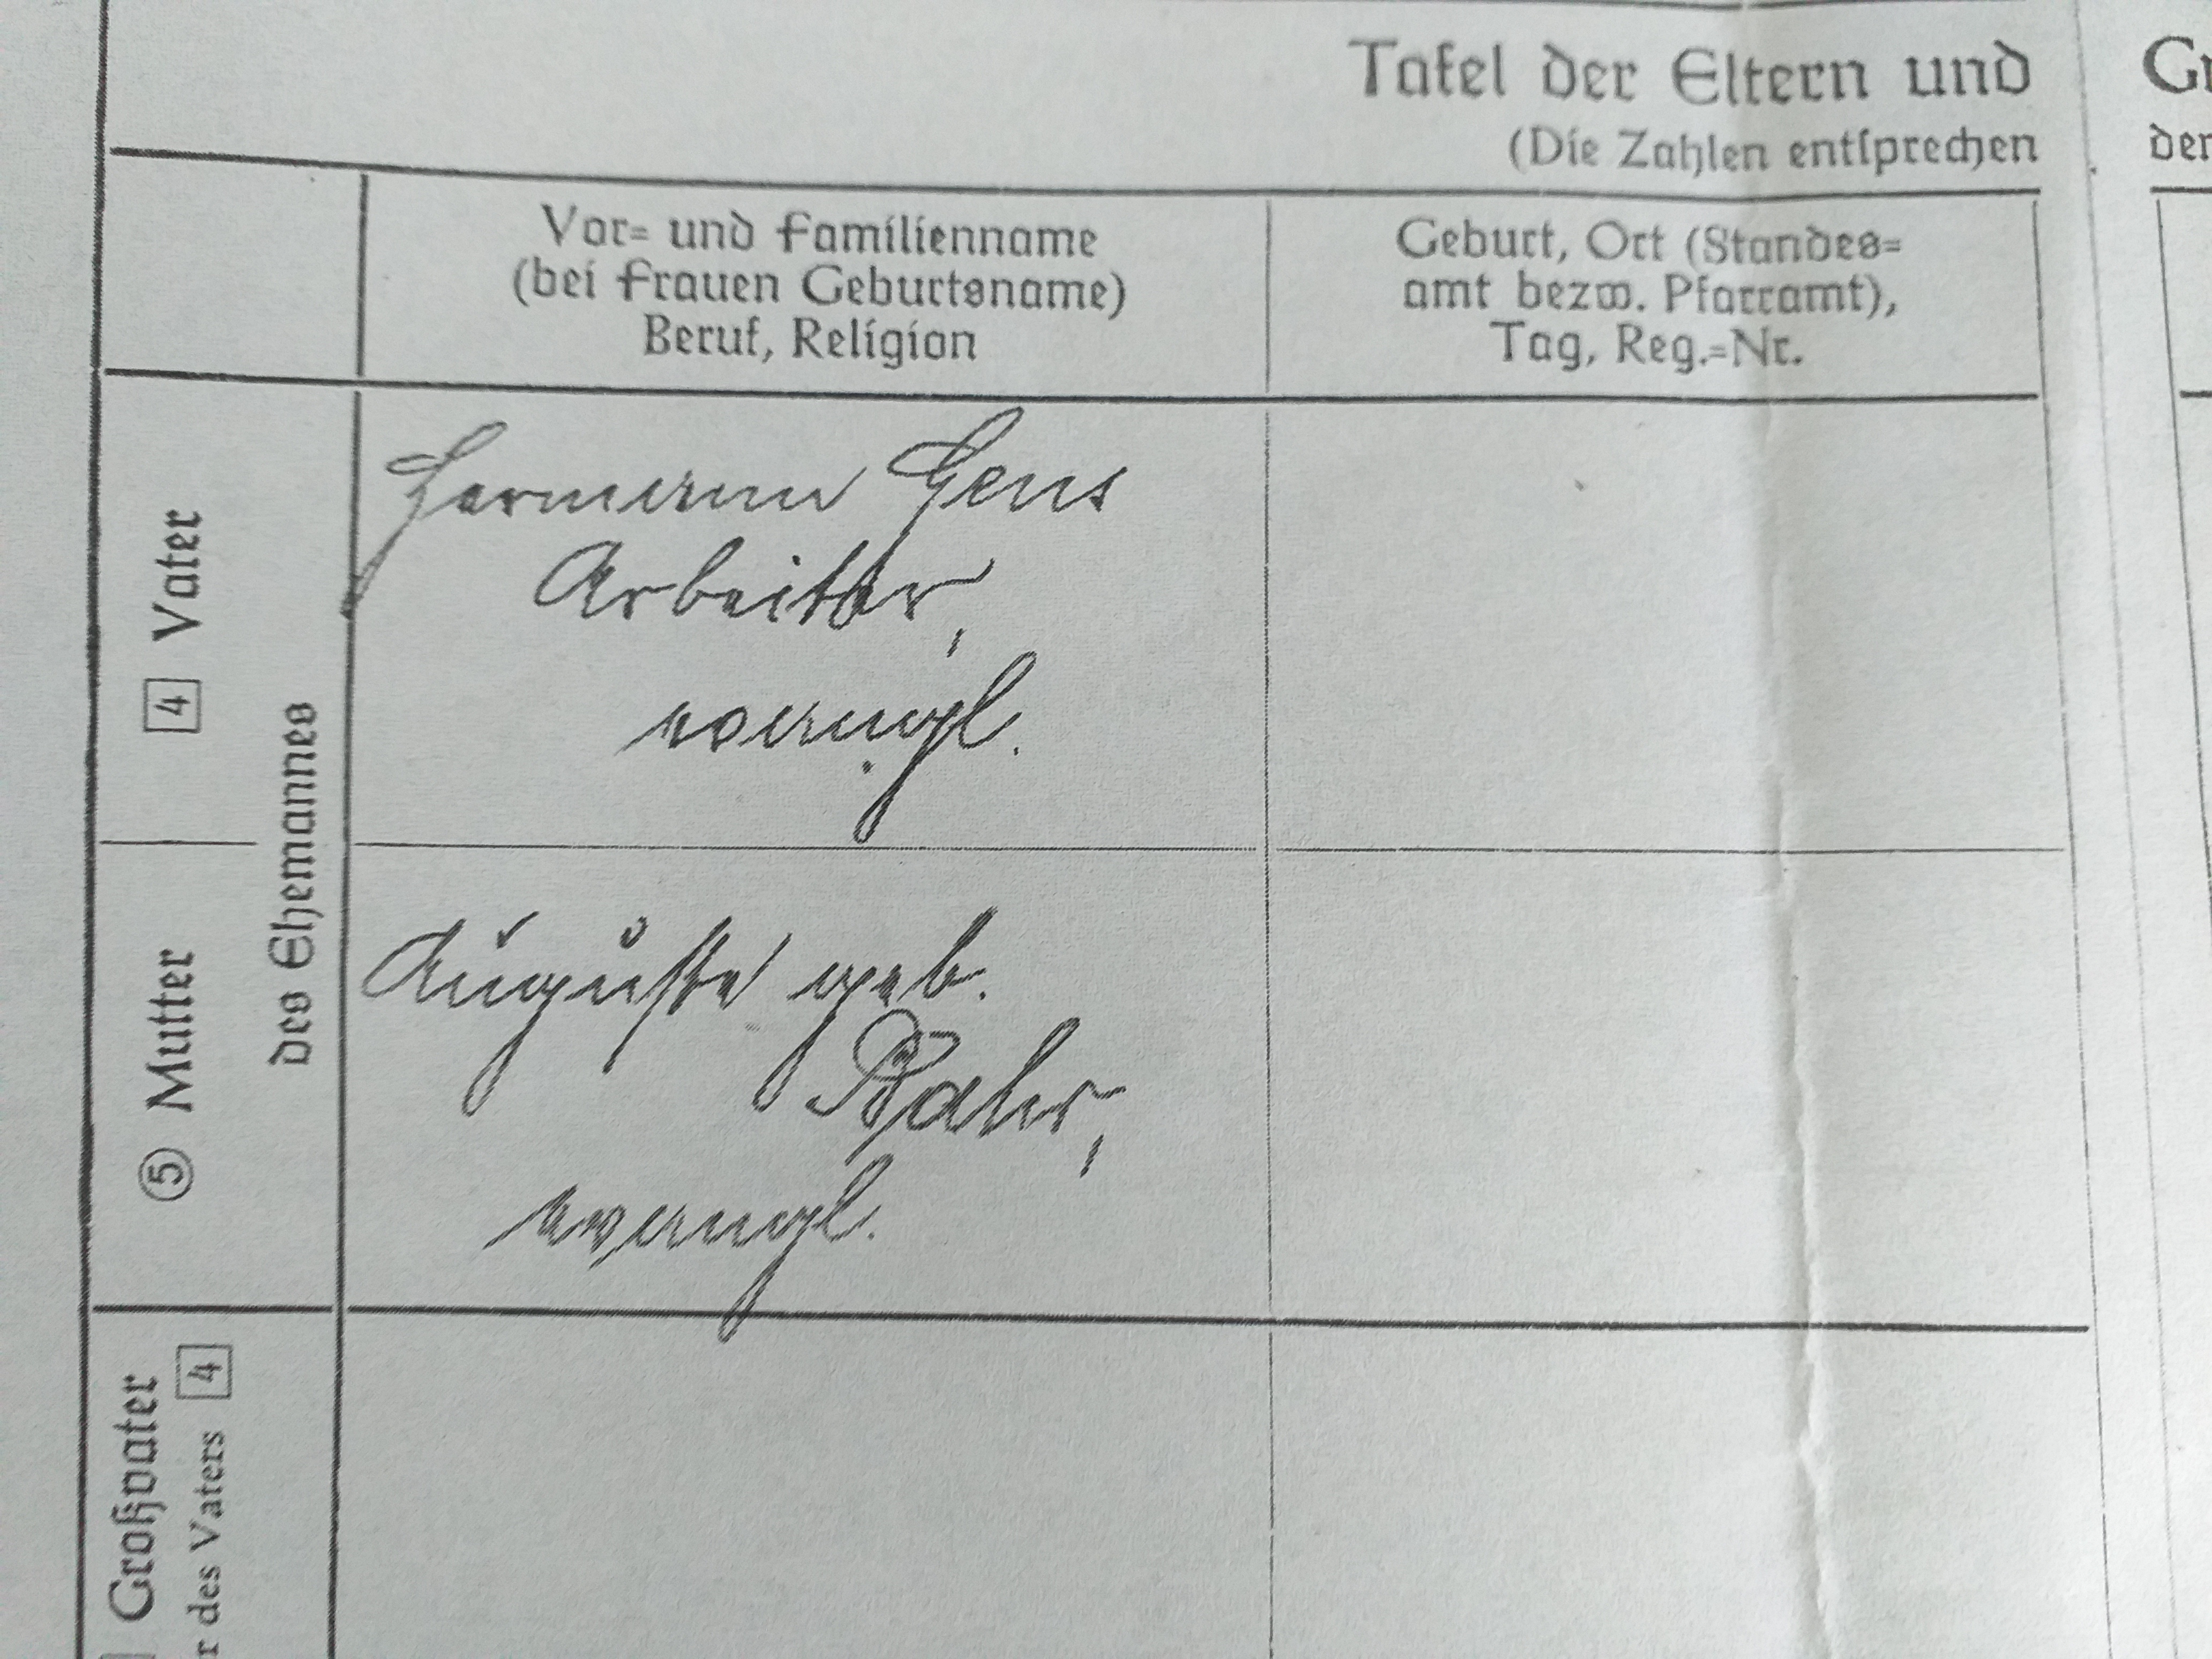 Tafel der Eltern und Gr
(Die Zahlen entsprechen der
Vor= und Familienname
(bei Frauen Geburtsname)
Beruf, Religion
Geburt, Ort (Standes=
amt bezw. Pfarramt),
Tag, Reg.=Nr.
4 Vater
des Ehemannes
Hermann Gens
Arbeiter,
evangl.
5 Mutter
Auguste geb.
evangl.
Großvater
r des Vaters 4